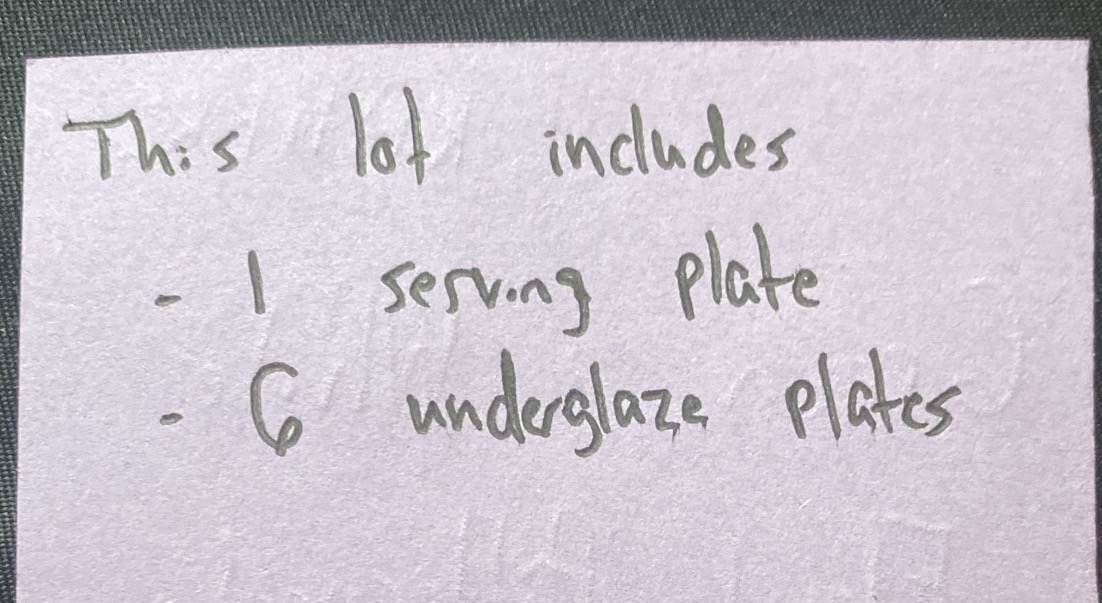 This lot includes
- 1 serving plate
- 6 underglaze plates